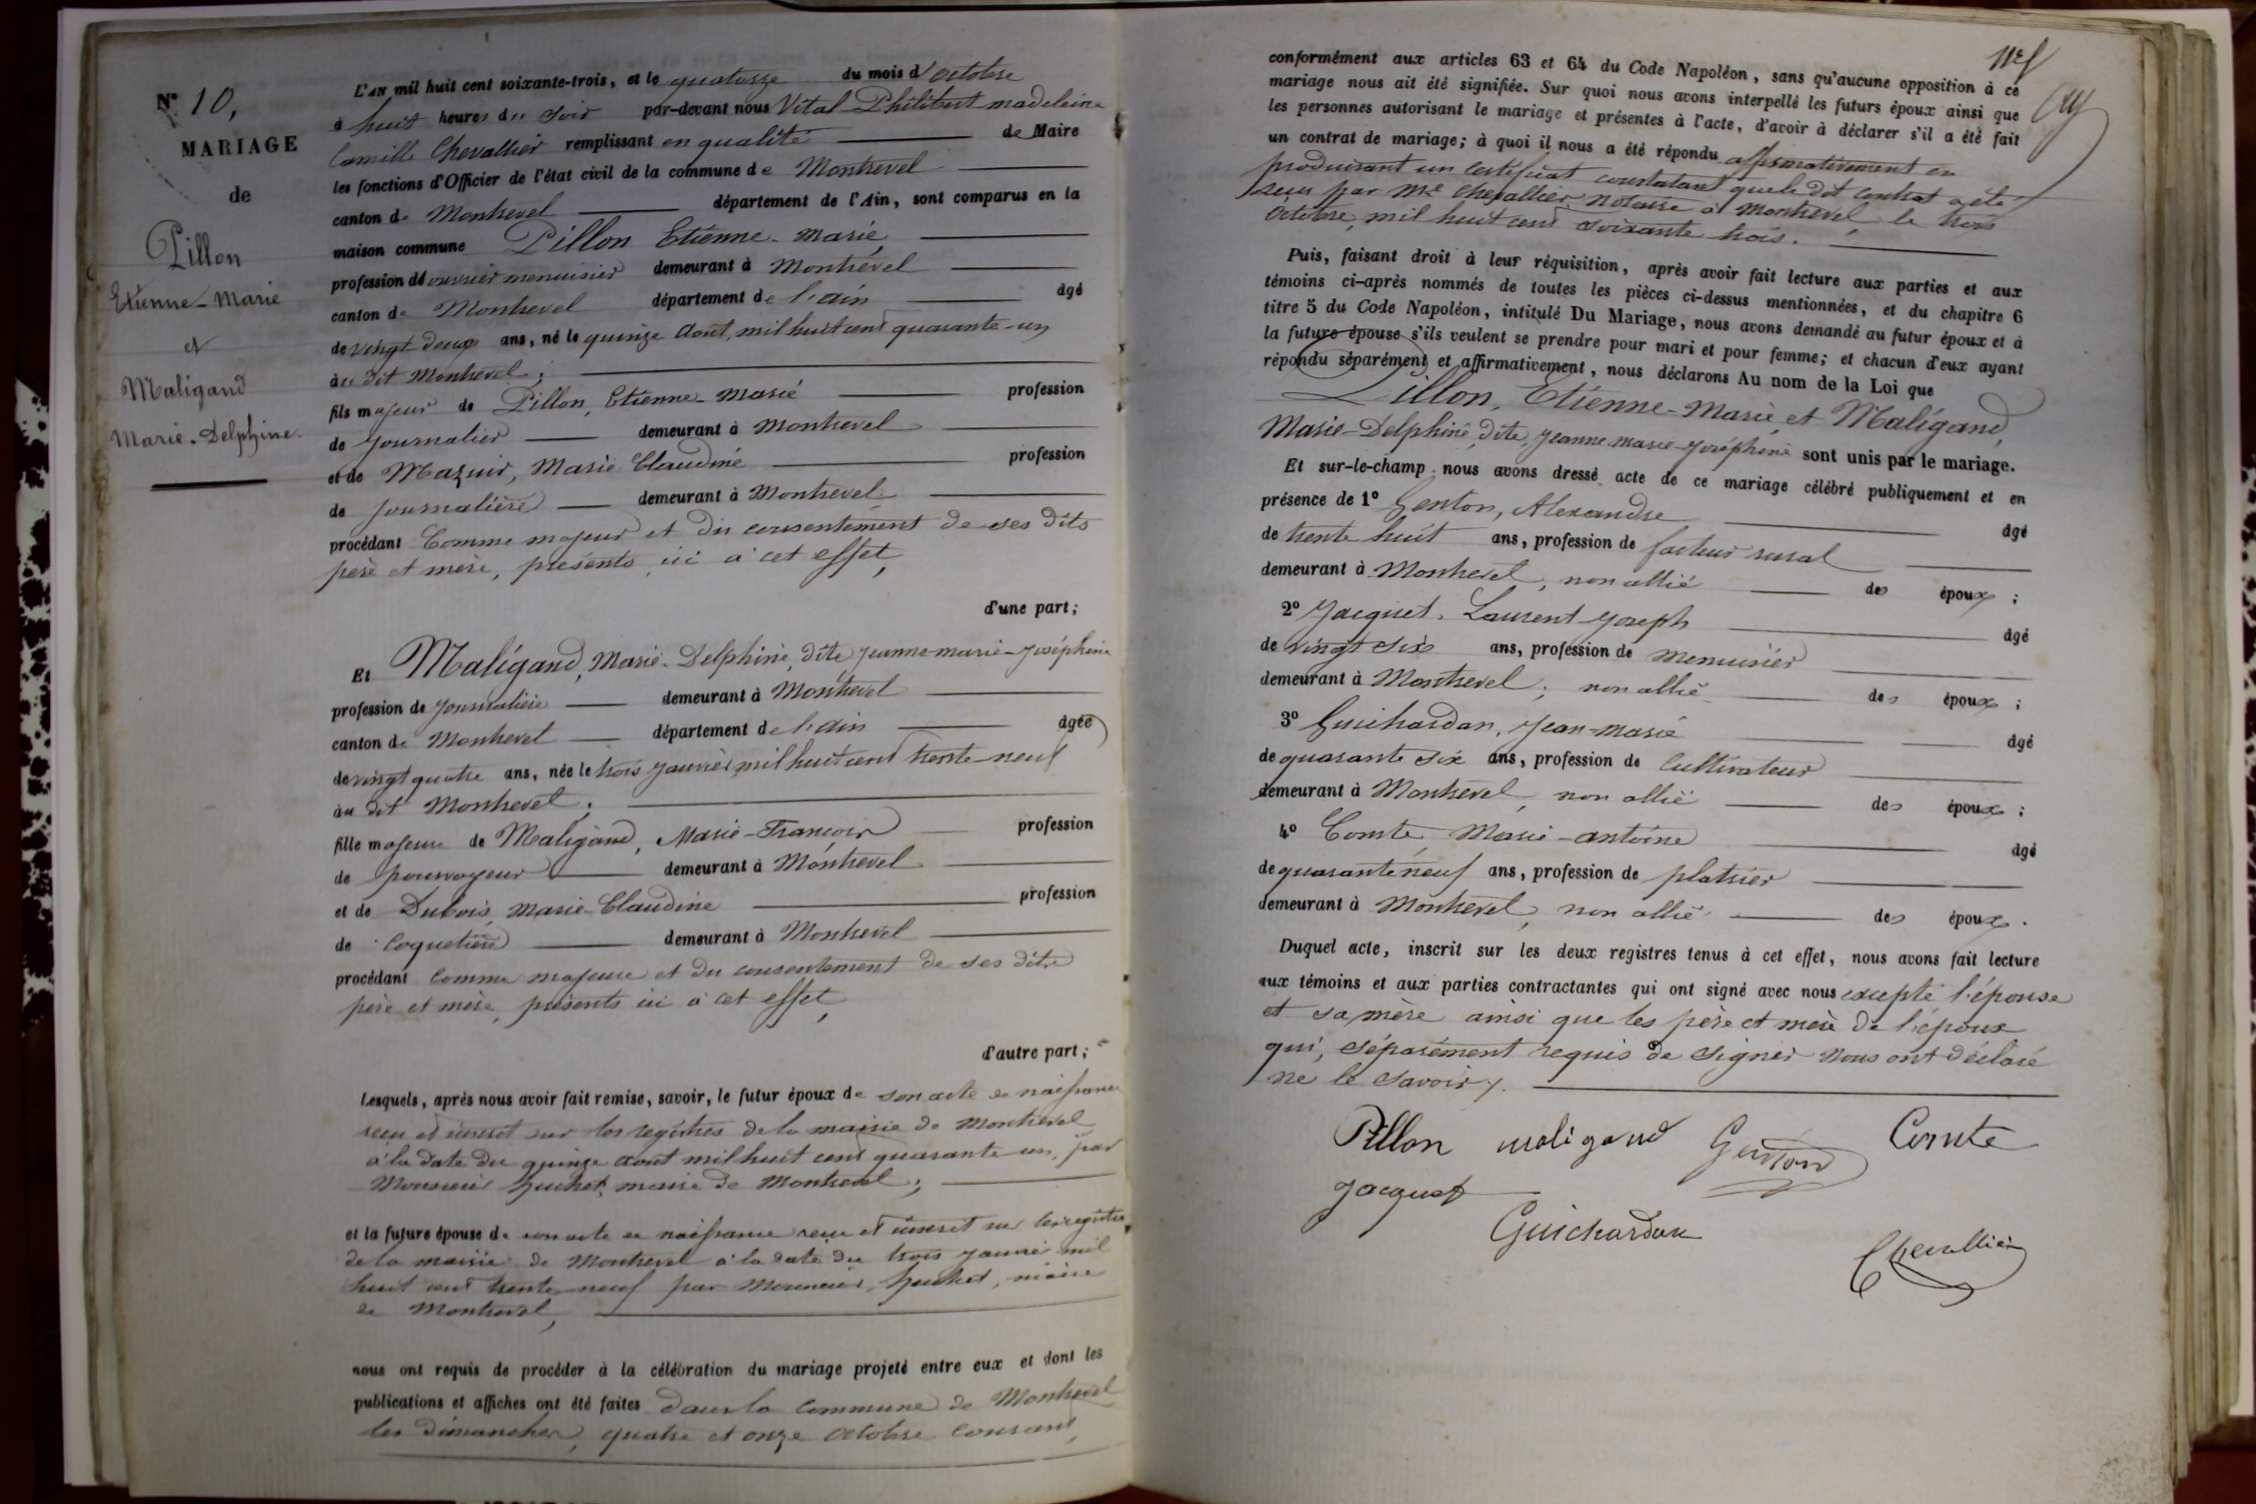 N° 10,
MARIAGE
de
Pillon
Etienne-Marie
et
Maligand
Marie-Delphine
L'AN mil huit cent soixante-trois, et le quatorze du mois d'octobre
à huit heures du soir par-devant nous Vital Philibert madeleine
Camille Chevallier remplissant en qualité de Maire
les fonctions d'Officier de l'état civil de la commune de Montrevel
canton de Montrevel département de l'Ain, sont comparus en la
maison commune Pillon Etienne-Marie,
profession d'ouvrier menuisier demeurant à Montrevel
canton de Montrevel département de l'ain âgé
de vingt-deux ans, né le quinze Aout, mil huit cent quarante-un
au dit Montrevel;
fils majeur de Pillon, Etienne-Marie profession
de Journalier demeurant à Montrevel
et de Mazuir, Marie Claudine profession
de Journalière demeurant à Montrevel
procédant Comme majeur et du consentement de ses dits
père et mère, présents ici à cet effet,
d'une part;
Et Maligand, Marie-Delphine, dite Jeanne-marie-Joséphine
profession de Journalière demeurant à Montrevel
canton de Montrevel département de l'ain âgée
de vingt quatre ans, née le trois Janvier mil huit cent trente-neuf
au dit Montrevel;
fille majeure de Maligand, Marie-François profession
de pourvoyeur demeurant à Montrevel
et de Dubois Marie-Claudine profession
de Coquetière demeurant à Montrevel
procédant Comme majeure et du consentement de ses dits
père et mère, présents ici à cet effet,
d'autre part;
Lesquels, après nous avoir fait remise, savoir, le futur époux de son acte de naissance
reçu et inscrit sur les registres de la mairie de Montrevel
à la date du quinze aout mil huit cent quarante un, par
Monsieur Huchet, maire de Montrevel;
et la future épouse de son acte de naissance reçu et inscrit sur les registres
de la mairie de Montrevel à la date du trois Janvier mil
huit cent trente-neuf par Monsieur Huchet, maire
de Montrevel,
nous ont requis de procéder à la célébration du mariage projeté entre eux et dont les
publications et affiches ont été faites dans la Commune de Montrevel
les dimanches, quatre et onze octobre Courant,
conformément aux articles 63 et 64 du Code Napoléon, sans qu'aucune opposition à ce
mariage nous ait été signifiée. Sur quoi nous avons interpellé les futurs époux ainsi que
les personnes autorisant le mariage et présentes à l'acte, d'avoir à déclarer s'il a été fait
un contrat de mariage; à quoi il nous a été répondu affirmativement en
produisant un certificat constatant que le dit contrat a été
reçu par Me Chevallier notaire à Montrevel, le trois
Octobre, mil huit cent soixante trois.
Puis, faisant droit à leur réquisition, après avoir fait lecture aux parties et aux
témoins ci-après nommés de toutes les pièces ci-dessus mentionnées, et du chapitre 6
titre 5 du Code Napoléon, intitulé Du Mariage, nous avons demandé au futur époux et à
la future épouse s'ils veulent se prendre pour mari et pour femme; et chacun d'eux ayant
répondu séparément et affirmativement, nous déclarons Au nom de la Loi que
Pillon, Etienne-Marie et Maligand,
Marie-Delphine, dite, Jeanne marie-Joséphine sont unis par le mariage.
Et sur-le-champ nous avons dressé acte de ce mariage célébré publiquement et en
présence de 1° Genton, Alexandre âgé
de trente huit ans, profession de facteur rural
demeurant à Montrevel, non allié des époux;
2° Jacquet, Laurent Joseph âgé
de vingt six ans, profession de menuisier
demeurant à Montrevel; non allié des époux;
3° Guichardan, Jean-Marie âgé
de quarante six ans, profession de Cultivateur
demeurant à Montrevel, non allié des époux;
4° Comte, Marie-antoine âgé
de quarante neuf ans, profession de platrier
demeurant à Montrevel, non allié des époux.
Duquel acte, inscrit sur les deux registres tenus à cet effet, nous avons fait lecture
aux témoins et aux parties contractantes qui ont signé avec nous excepté l'épouse
et sa mère ainsi que les père et mère de l'époux
qui, séparément requis de signer nous ont déclaré
ne le savoir.
Pillon maligand Genton Comte
Jacquet
Guichardan
Chevallier